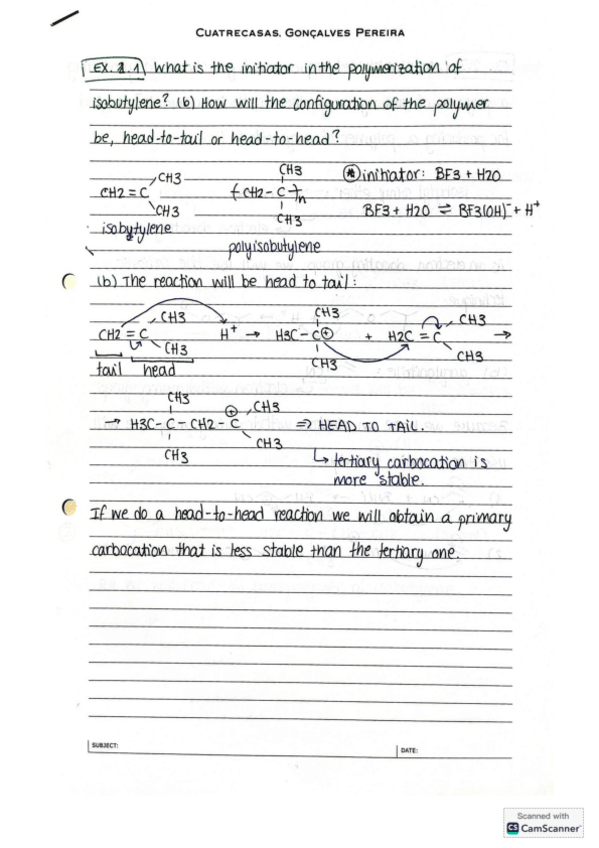 CUATRECASAS, GONÇALVES PEREIRA
EX. 2.1 What is the initiator in the polymerization of
isobutylene? (b) How will the configuration of the polymer
be, head-to-tail or head-to-head?
CH2 = C CH3 CH3
(CH2 - C)n CH3 CH3
initiator: BF3 + H2O
BF3 + H2O ⇌ BF3(OH)⁻ + H⁺
isobutylene
polyisobutylene
(b) The reaction will be head to tail:
CH2 = C CH3 CH3 H⁺ → H3C - C⊕ CH3 CH3 + H2C = C CH3 CH3 →
tail head
→ H3C - C - CH2 - C⊕ CH3 CH3 CH3 CH3 ⇒ HEAD TO TAIL.
↳ tertiary carbocation is
more stable.
If we do a head-to-head reaction we will obtain a primary
carbocation that is less stable than the tertiary one.
SUBJECT: DATE:
Scanned with
CS CamScanner